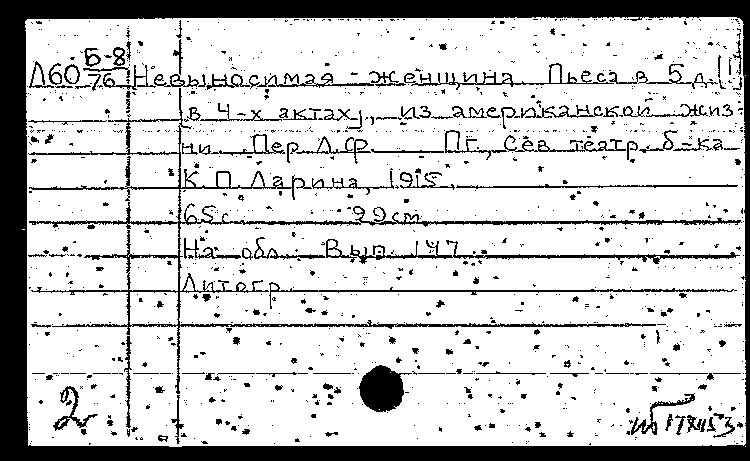 Л60 Б-8/76 Невыносимая - женщина. Пьеса в 5 д. [!]
[в 4-х актах], из американской жиз-
ни. Пер. Л.Ф. Пг., Сев. театр. б-ка
К.П. Ларина, 1915.
65 с. 22 см
На обл.: Вып. 147
Литогр.
2